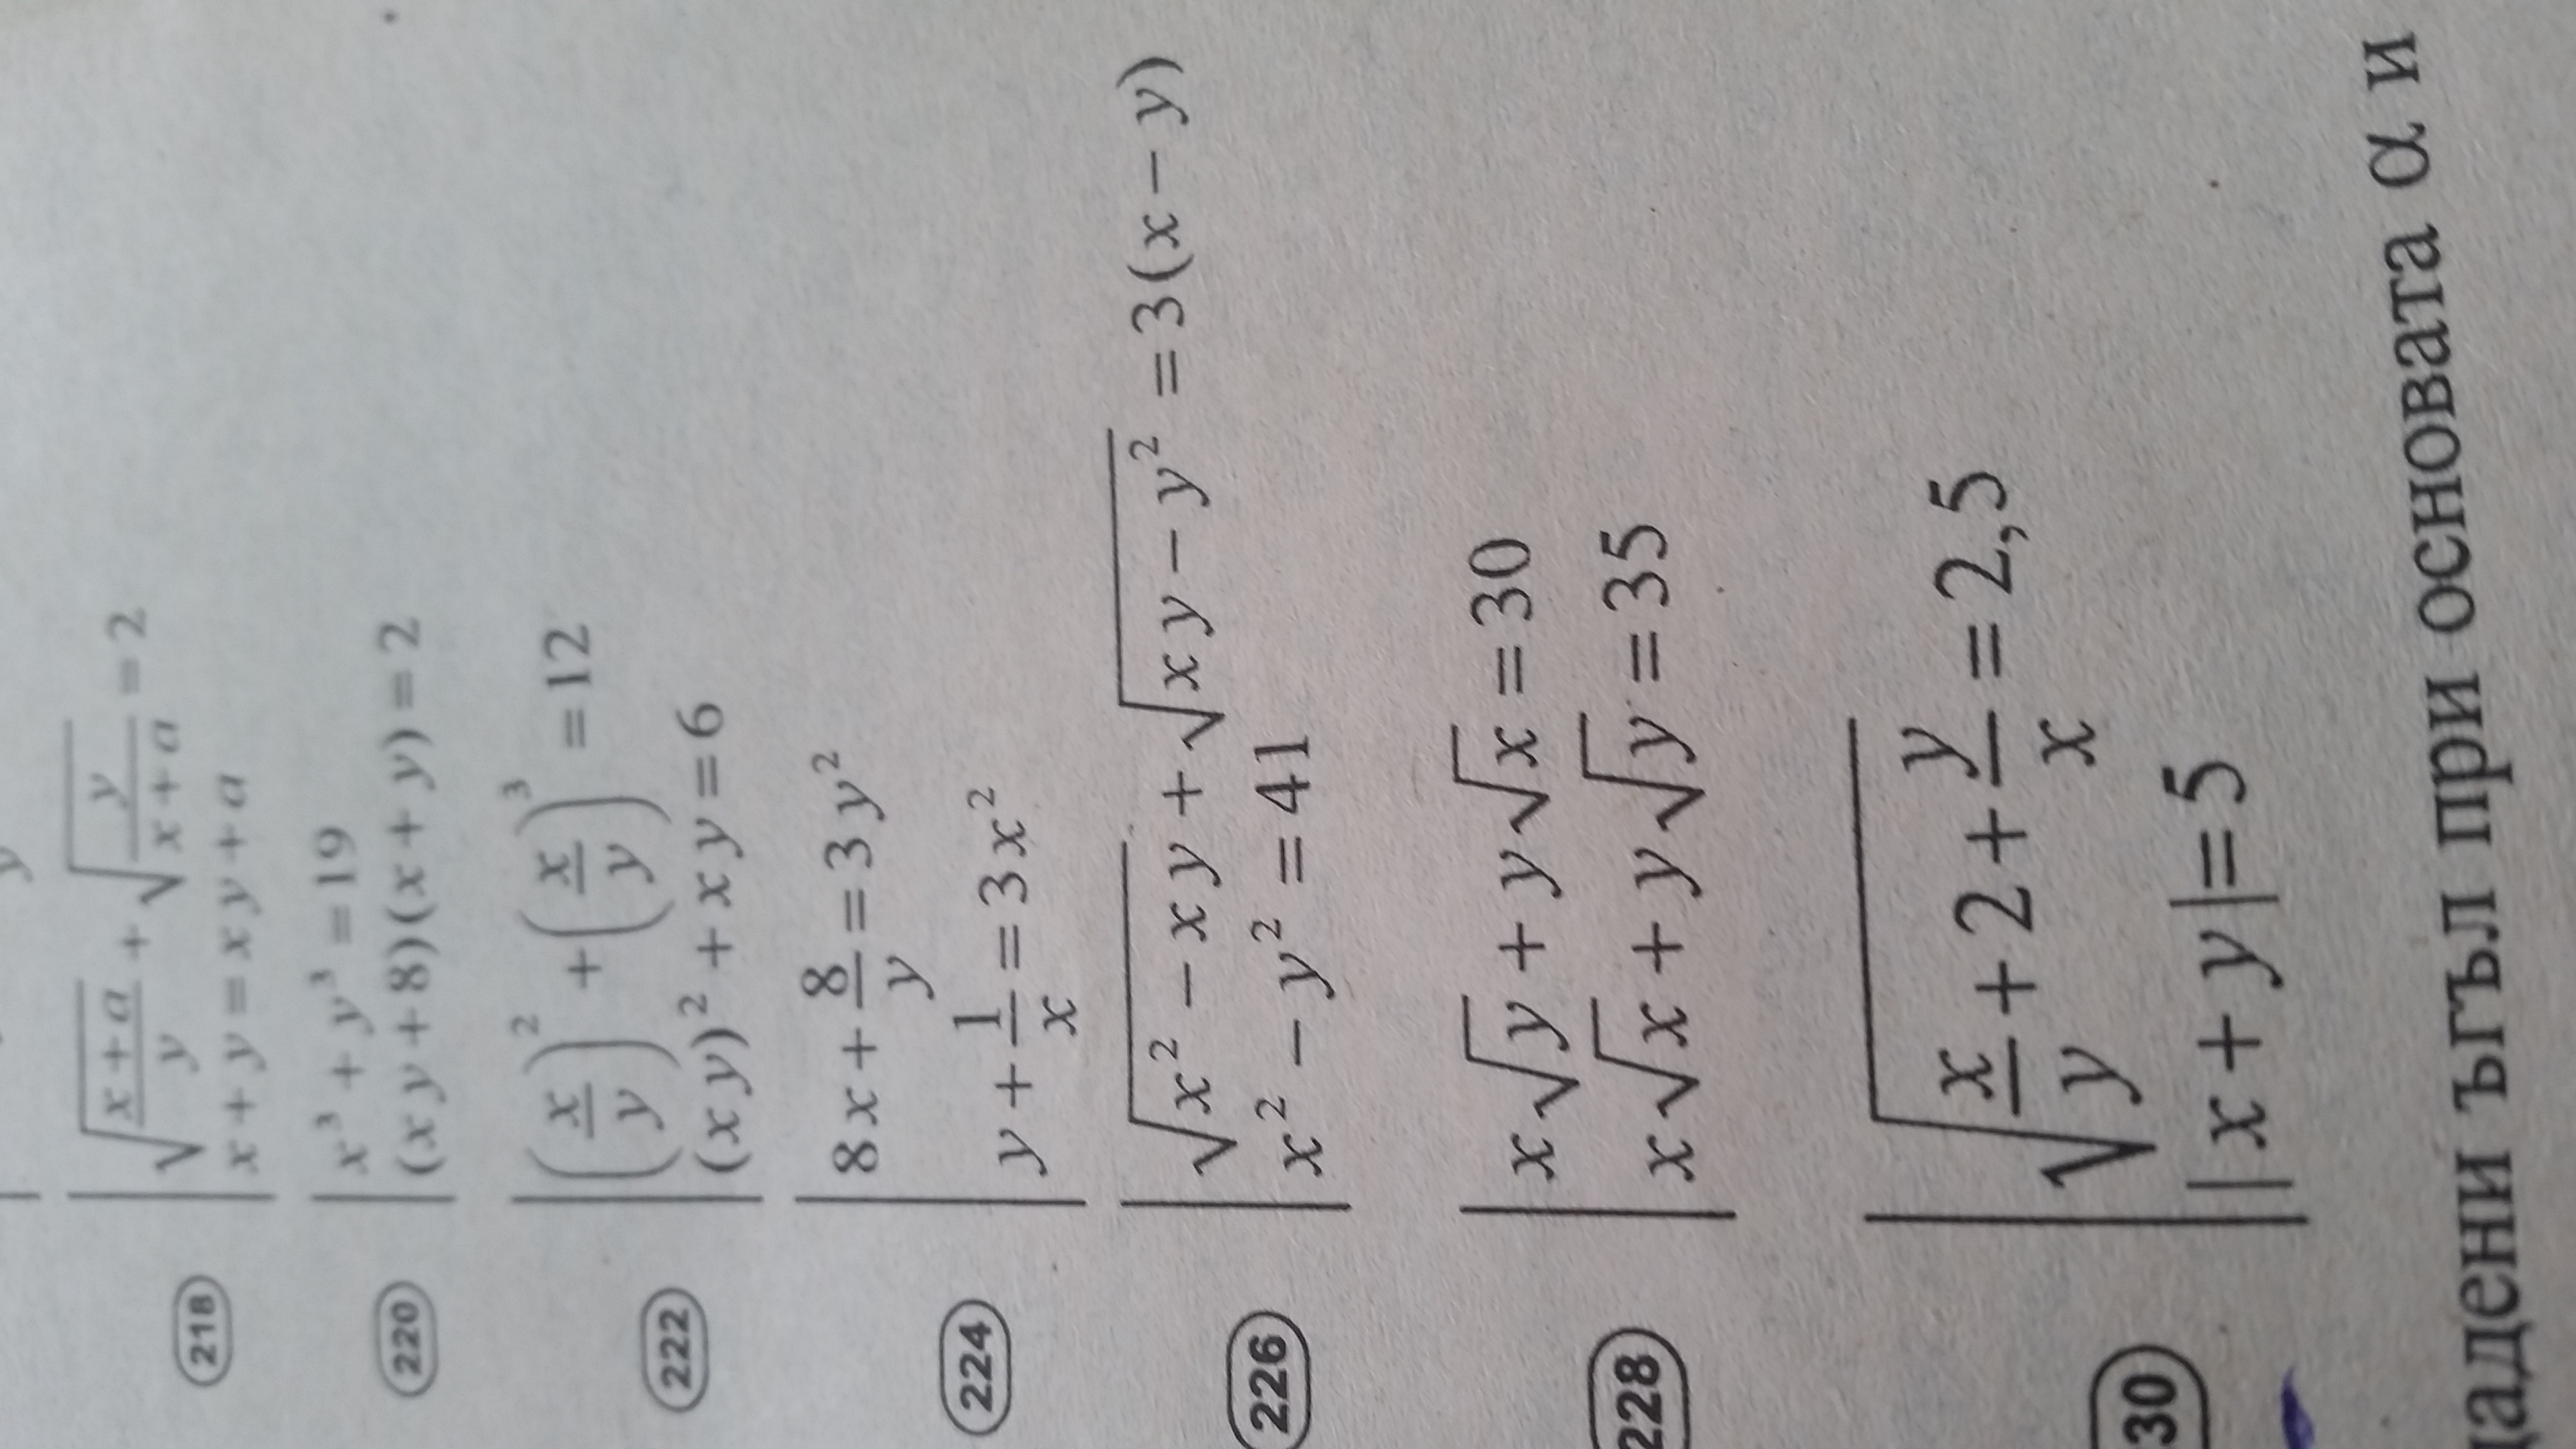 y
218 √((x+a)/y) + √(y/(x+a)) = 2
x + y = xy + a
220 x³ + y³ = 19
(xy + 8)(x + y) = 2
222 (x/y)² + (x/y)³ = 12
(xy)² + xy = 6
224 8x + 8/y = 3y²
y + 1/x = 3x²
226 √(x² − xy) + √(xy − y²) = 3(x − y)
x² − y² = 41
228 x√y + y√x = 30
x√x + y√y = 35
30 √(x/y + 2 + y/x) = 2,5
|x + y| = 5
адени ъгъл при основата α и